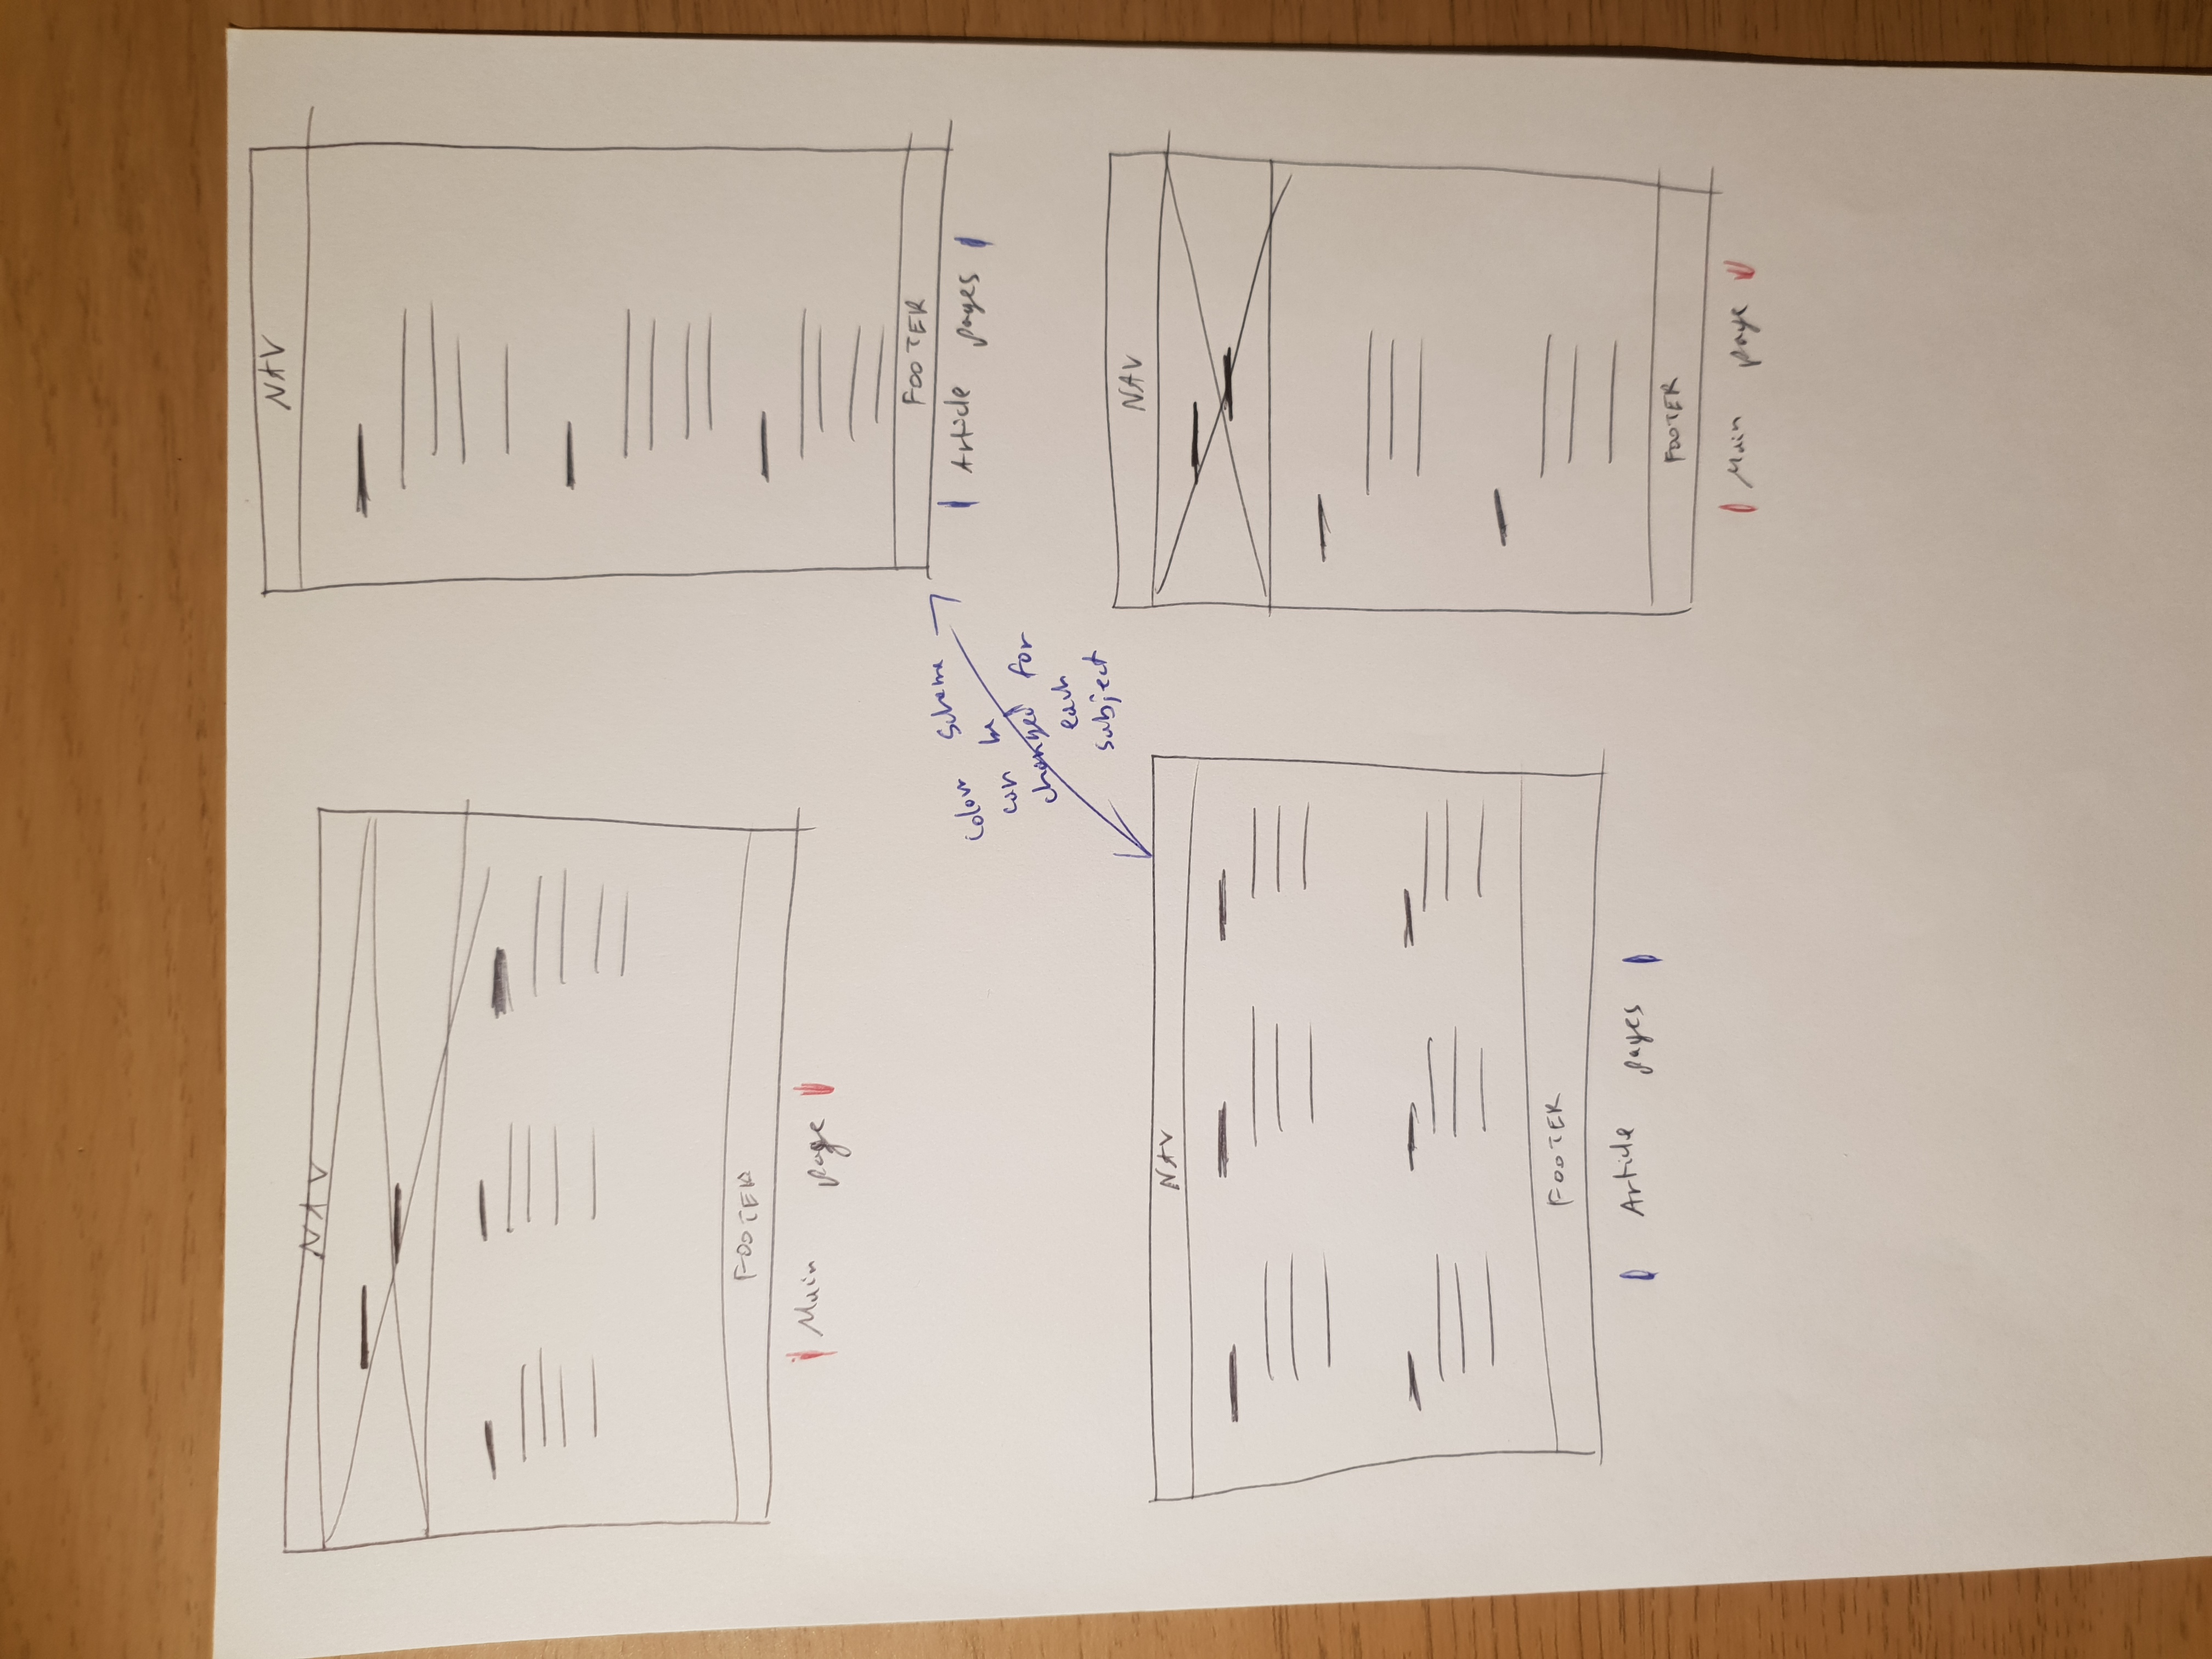 NAV
FOOTER
Main page
NAV
FOOTER
Article pages
Colour Scheme
can be
changed for
each
subject
NAV
FOOTER
Article pages
NAV
FOOTER
Main page